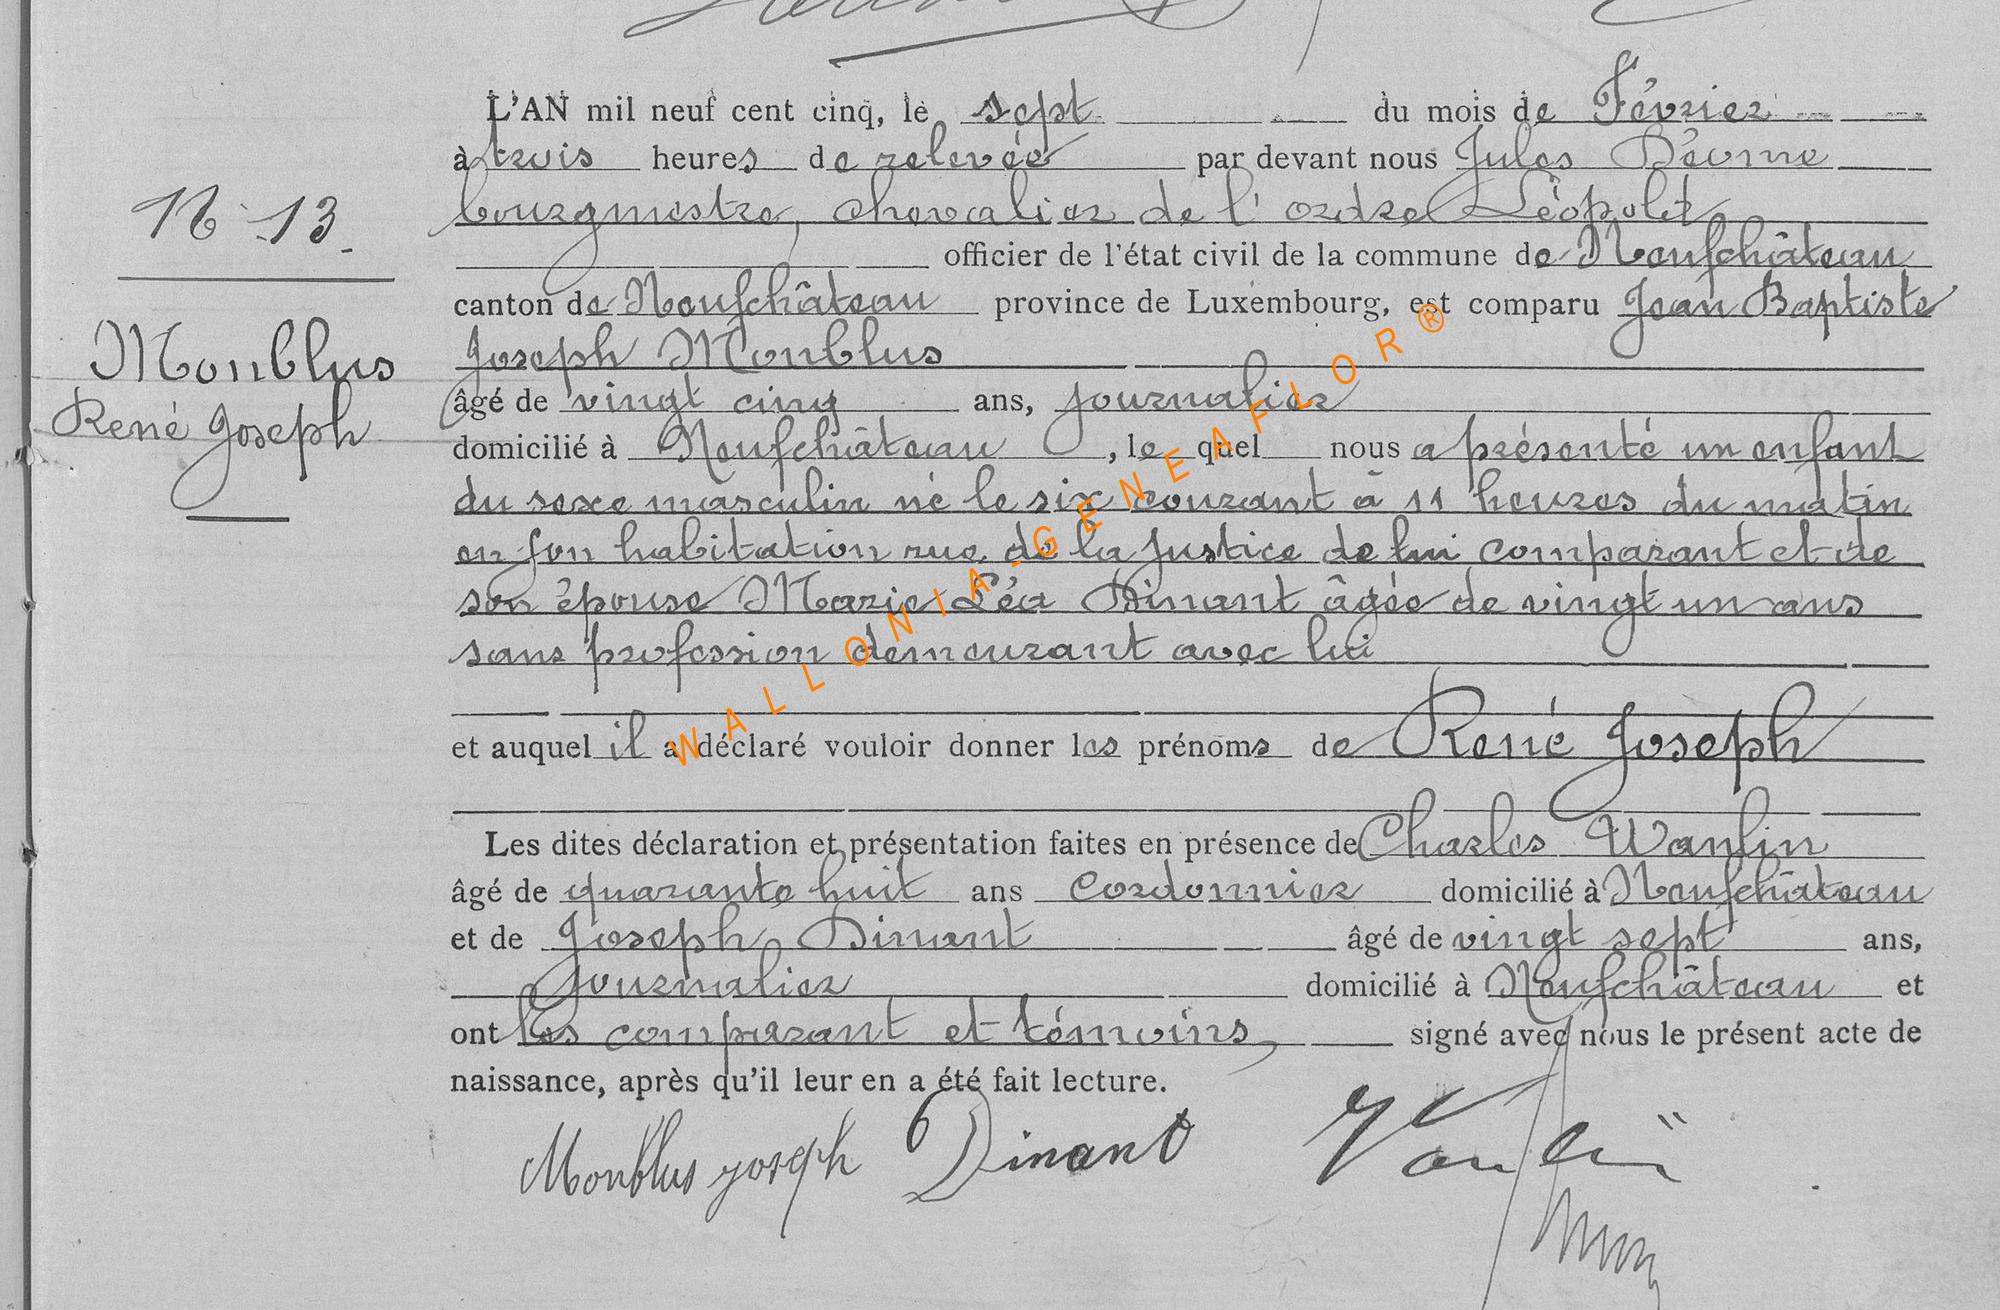 N° 13
Monblus
René Joseph
L'AN mil neuf cent cinq, le sept du mois de Février
à trois heures de relevée par devant nous Jules
bourgmestre, chevalier de l'ordre Léopold
officier de l'état civil de la commune de Neufchâteau
canton de Neufchâteau province de Luxembourg, est comparu Jean Baptiste
Joseph Monblus
âgé de vingt cinq ans, journalier
domicilié à Neufchâteau, le quel nous a présenté un enfant
du sexe masculin né le six courant à 11 heures du matin
en son habitation rue de la Justice de lui comparant et de
son épouse Marie Léa Dinant âgée de vingt un ans
sans profession demeurant avec lui
et auquel il a déclaré vouloir donner les prénoms de René Joseph
Les dites déclaration et présentation faites en présence de Charles Wanlin
âgé de quarante huit ans cordonnier domicilié à Neufchâteau
et de Joseph Dinant âgé de vingt sept ans,
journalier domicilié à Neufchâteau et
ont les comparant et témoins signé avec nous le présent acte de
naissance, après qu'il leur en a été fait lecture.
Monblus joseph Dinant Wanlin
WALLONIA-GENEAFLOR®